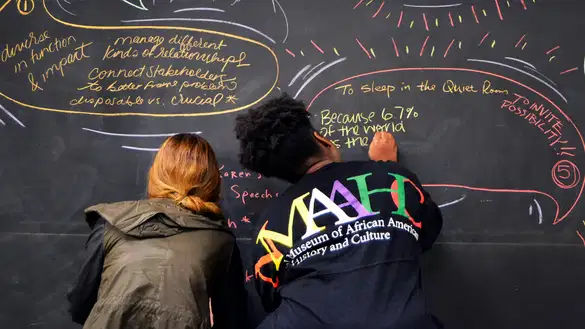 diverse
in function
& impact
manage different
kinds of relationships!
connect stakeholders
to better from problems
disposable vs. crucial *
To sleep in the Quiet Room
TO INVITE
POSSIBILITY!!!
5
Because 67%
of the world
is the
Speech
MAAHC
Museum of African American
History and Culture